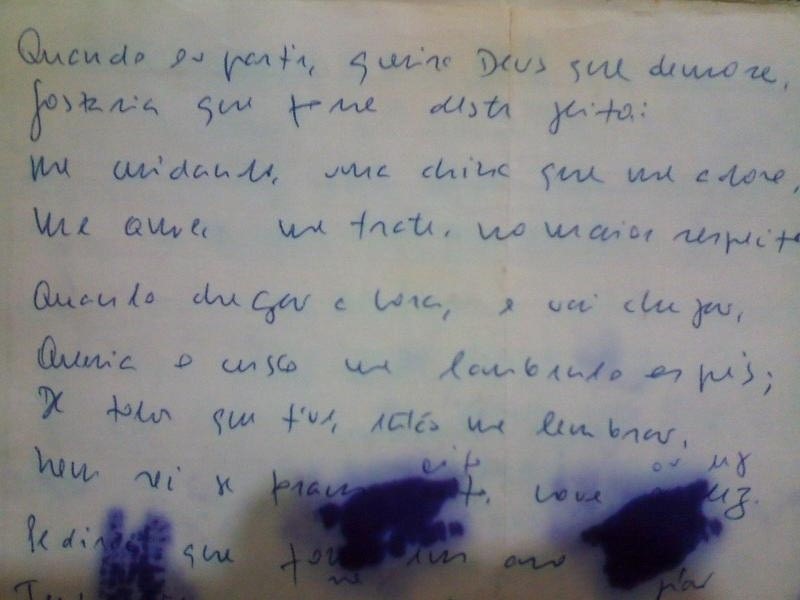 Quando eu partir, queira Deus que demore,
Gostaria que fosse deste jeito:
Me cuidando, uma china que me adore,
Me ame, me trate, no maior respeito
Quando chegar a hora, e vai chegar,
Queria o cusco me lambendo os pés;
De todos que tive, então me lembrar,
Nem sei se foram oito, nove ou dez.
que um